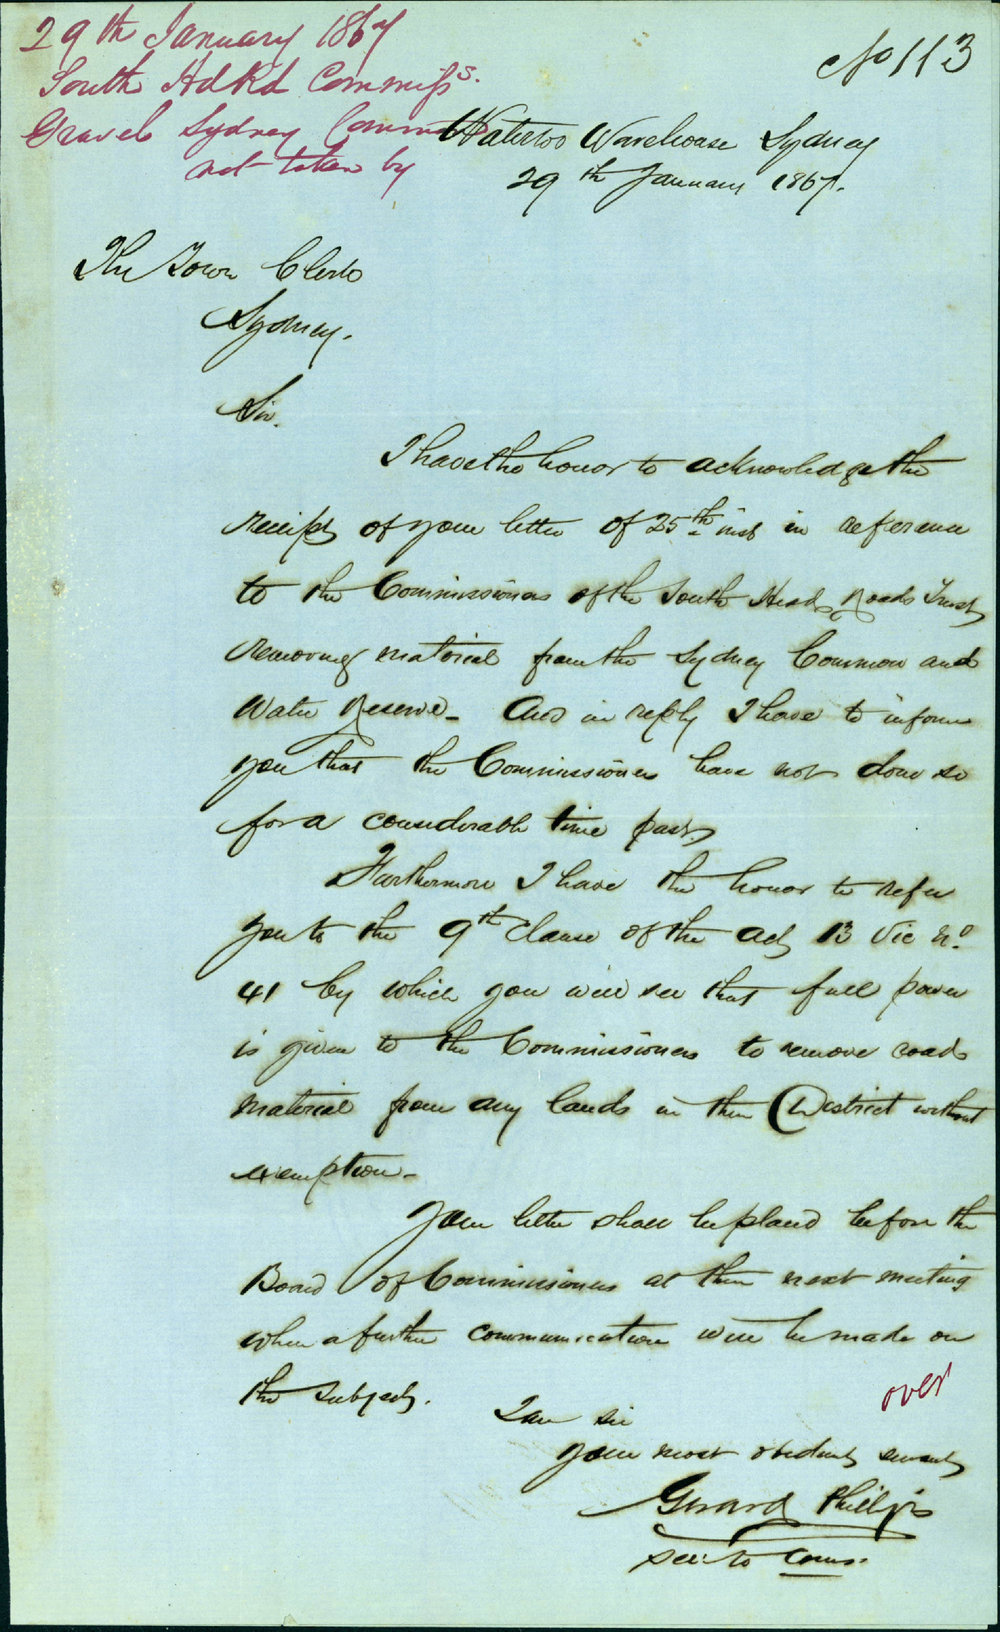 29th January 1867
No 113
South Hd Rd Commisss.
Gravel Sydney Common
not taken by
Waterloo Warehouse Sydney
29th January 1867.
The Town Clerk
Sydney.
Sir.
I have the honor to acknowledge the
receipt of your letter of 25th inst in reference
to the Commissioners of the South Head Roads Trust
removing material from the Sydney Common and
Water Reserve - And in reply I have to inform
you that the Commissioners have not done so
for a considerable time past.
Furthermore I have the honor to refer
you to the 9th Clause of the Act 13 Vic No.
41 by which you will see that full power
is given to the Commissioners to remove road
material from any lands in their District without
exemption -
Your letter shall be placed before the
Board of Commissioners at their next meeting
when a further communication will be made on
the subject.
over
I am sir
your most obedient servant
Gerard Phillips
Sec: to Coms.